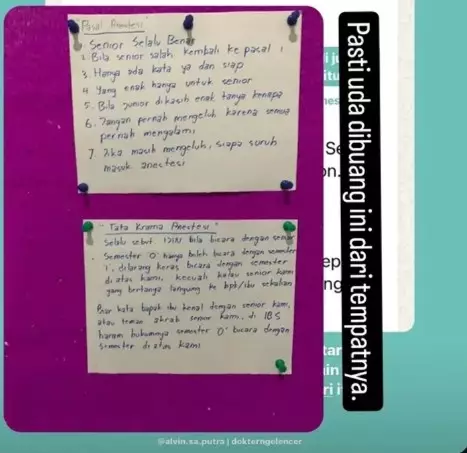 "Pasal Anestesi"
1. Senior Selalu Benar
2. Bila senior salah, kembali ke pasal 1
3. Hanya ada kata ya dan siap
4. Yang enak hanya untuk senior
5. Bila junior dikasih enak tanya kenapa
6. Jangan pernah mengeluh karena semua
pernah mengalami
7. Jika masih mengeluh, siapa suruh
masuk anestesi
"Tata Krama Anestesi"
Selalu sebut izin bila bicara dengan senior
Semester 0 hanya boleh bicara dengan semester
1, dilarang keras bicara dengan semester
di atas kami, kecuali kalau senior kami
yang bertanya langsung ke bpk/ibu sekalian
kata bapak ibu kenal dengan senior kami,
atau teman akrab senior kami, di IBS
haram hukumnya semester 0 bicara dengan
semester di atas kami
Pasti uda dibuang ini dari tempatnya.
@alvin.sa.putra | dokterngelencer